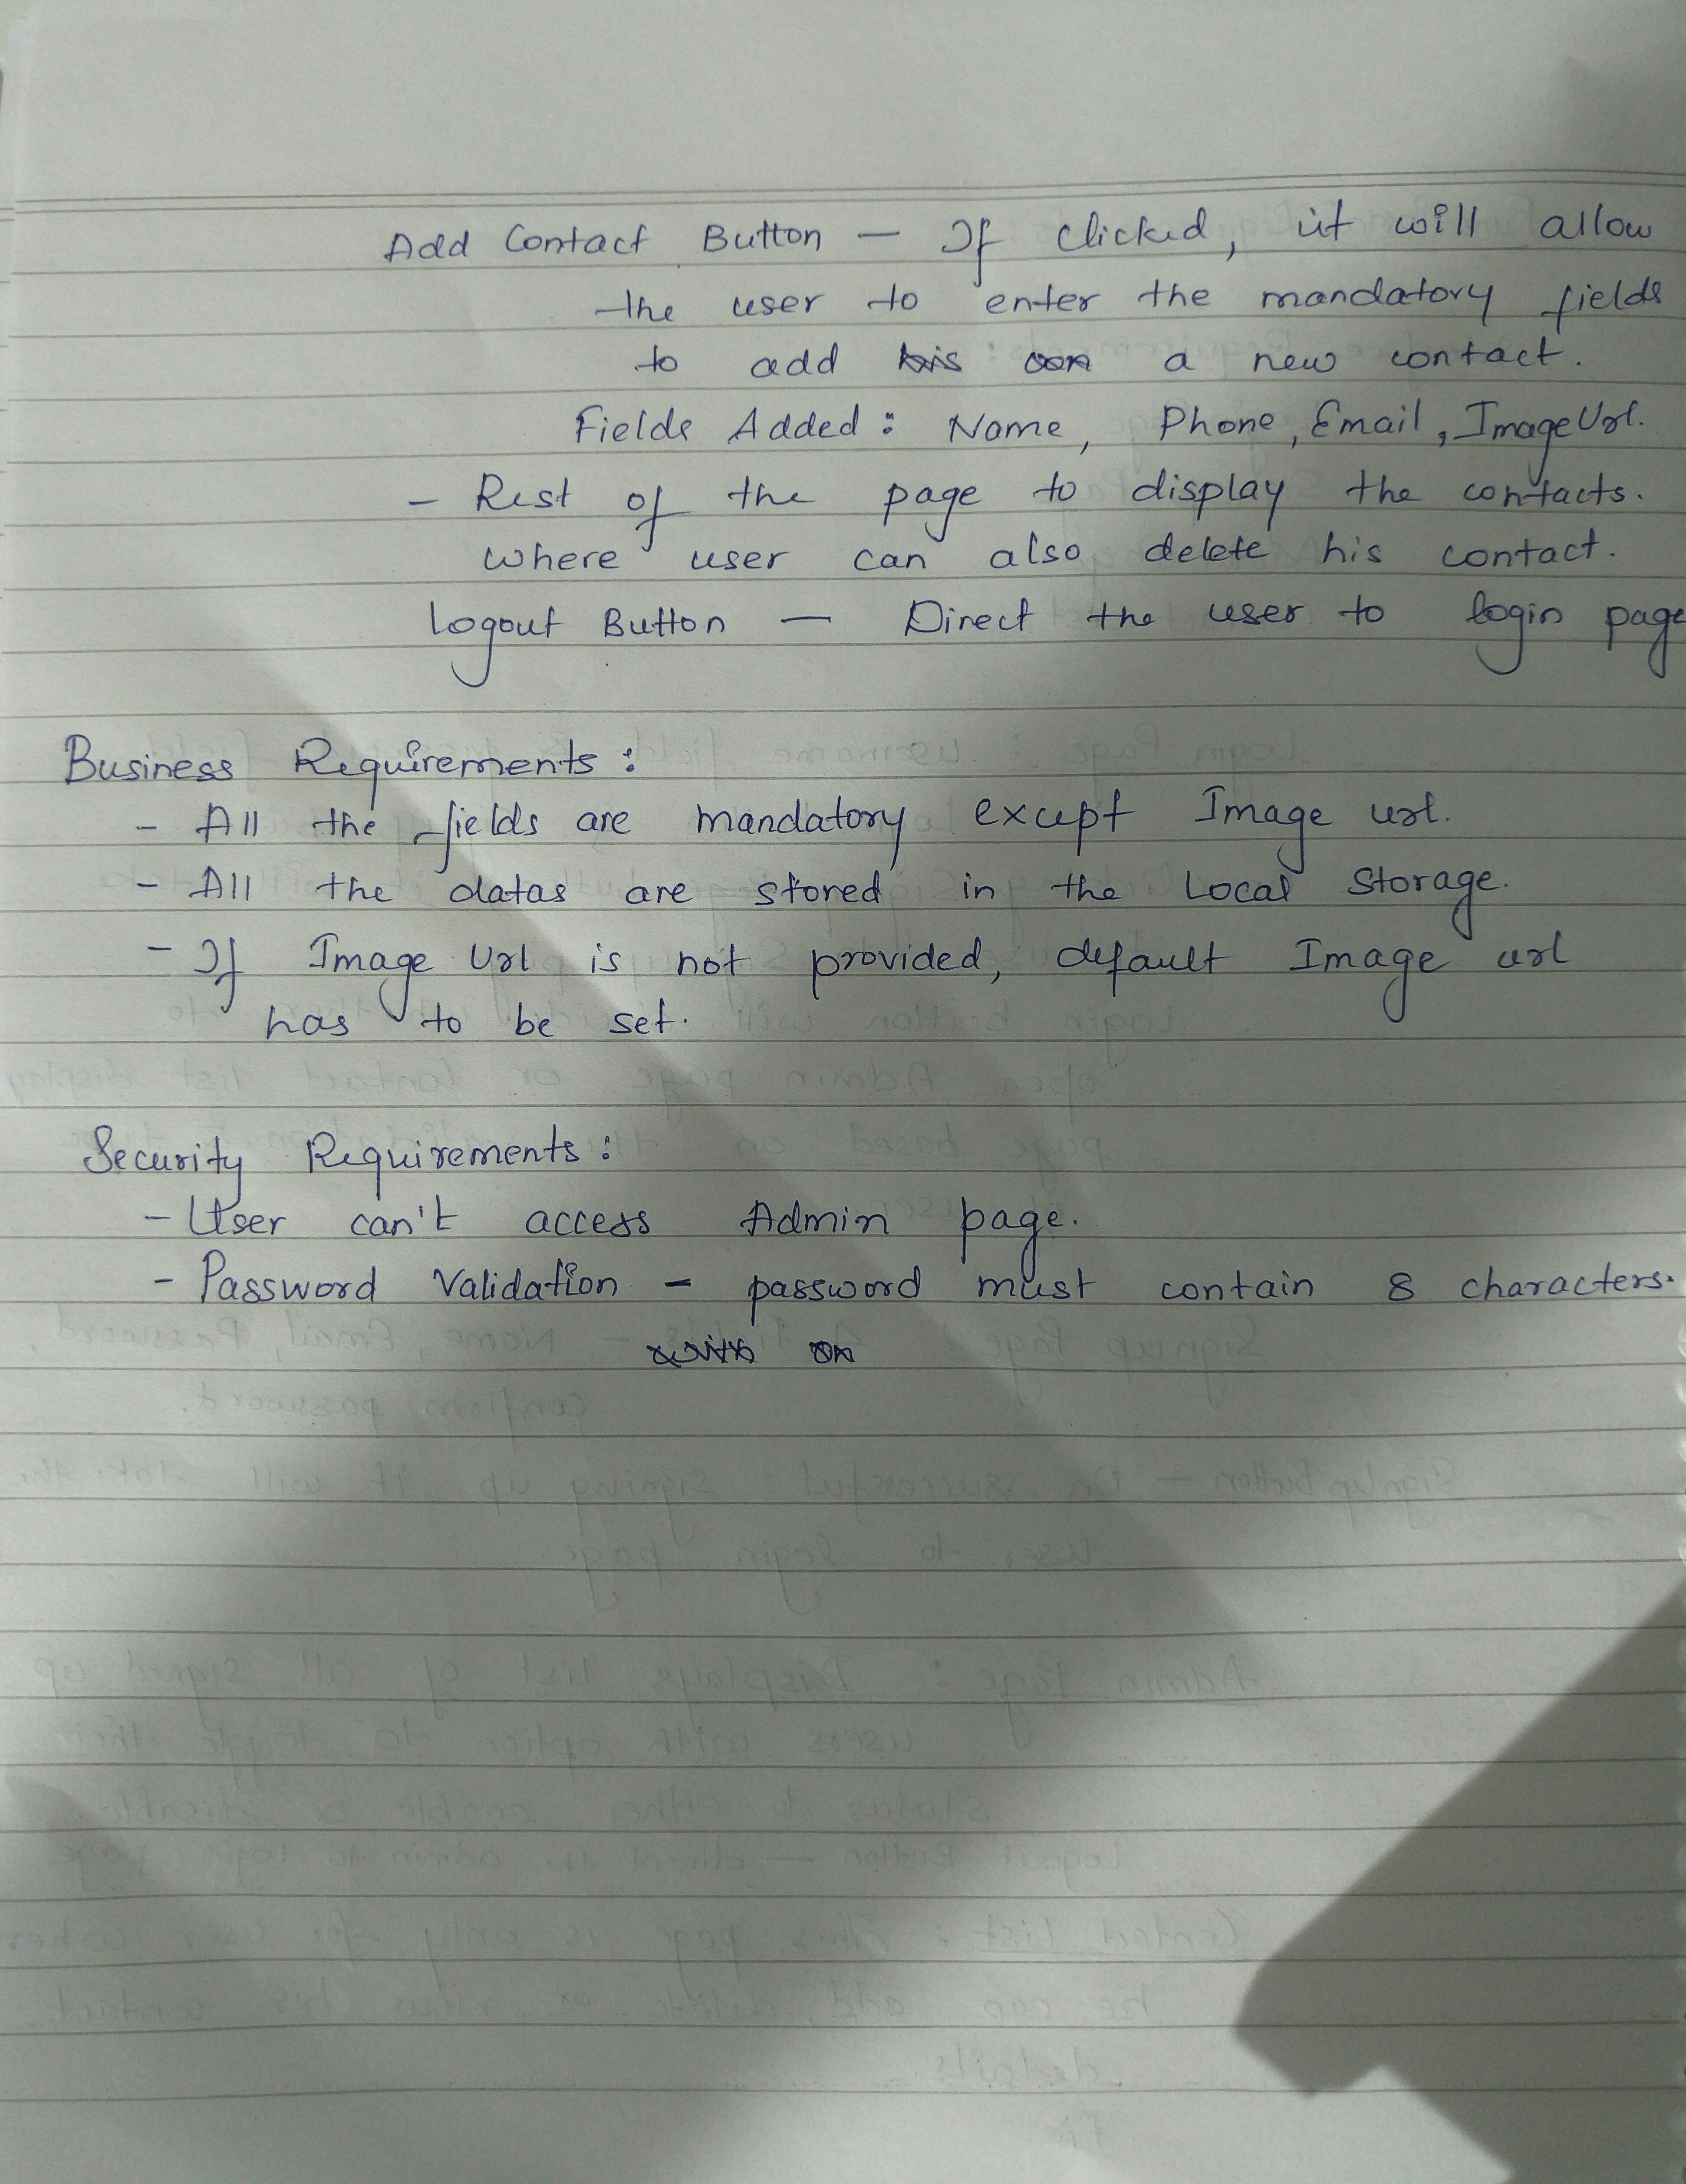 Add Contact Button — If clicked, it will allow
the user to enter the mandatory fields
to add a new contact.
Fields Added: Name, Phone, Email, Image Url.
- Rest of the page to display the contacts.
where user can also delete his contact.
Logout Button — Direct the user to login page
Business Requirements:
- All the fields are mandatory except Image url.
- All the datas are stored in the Local Storage.
- If Image Url is not provided, default Image url
has to be set.
Security Requirements:
- User can't access Admin page.
- Password Validation - password must contain 8 characters.